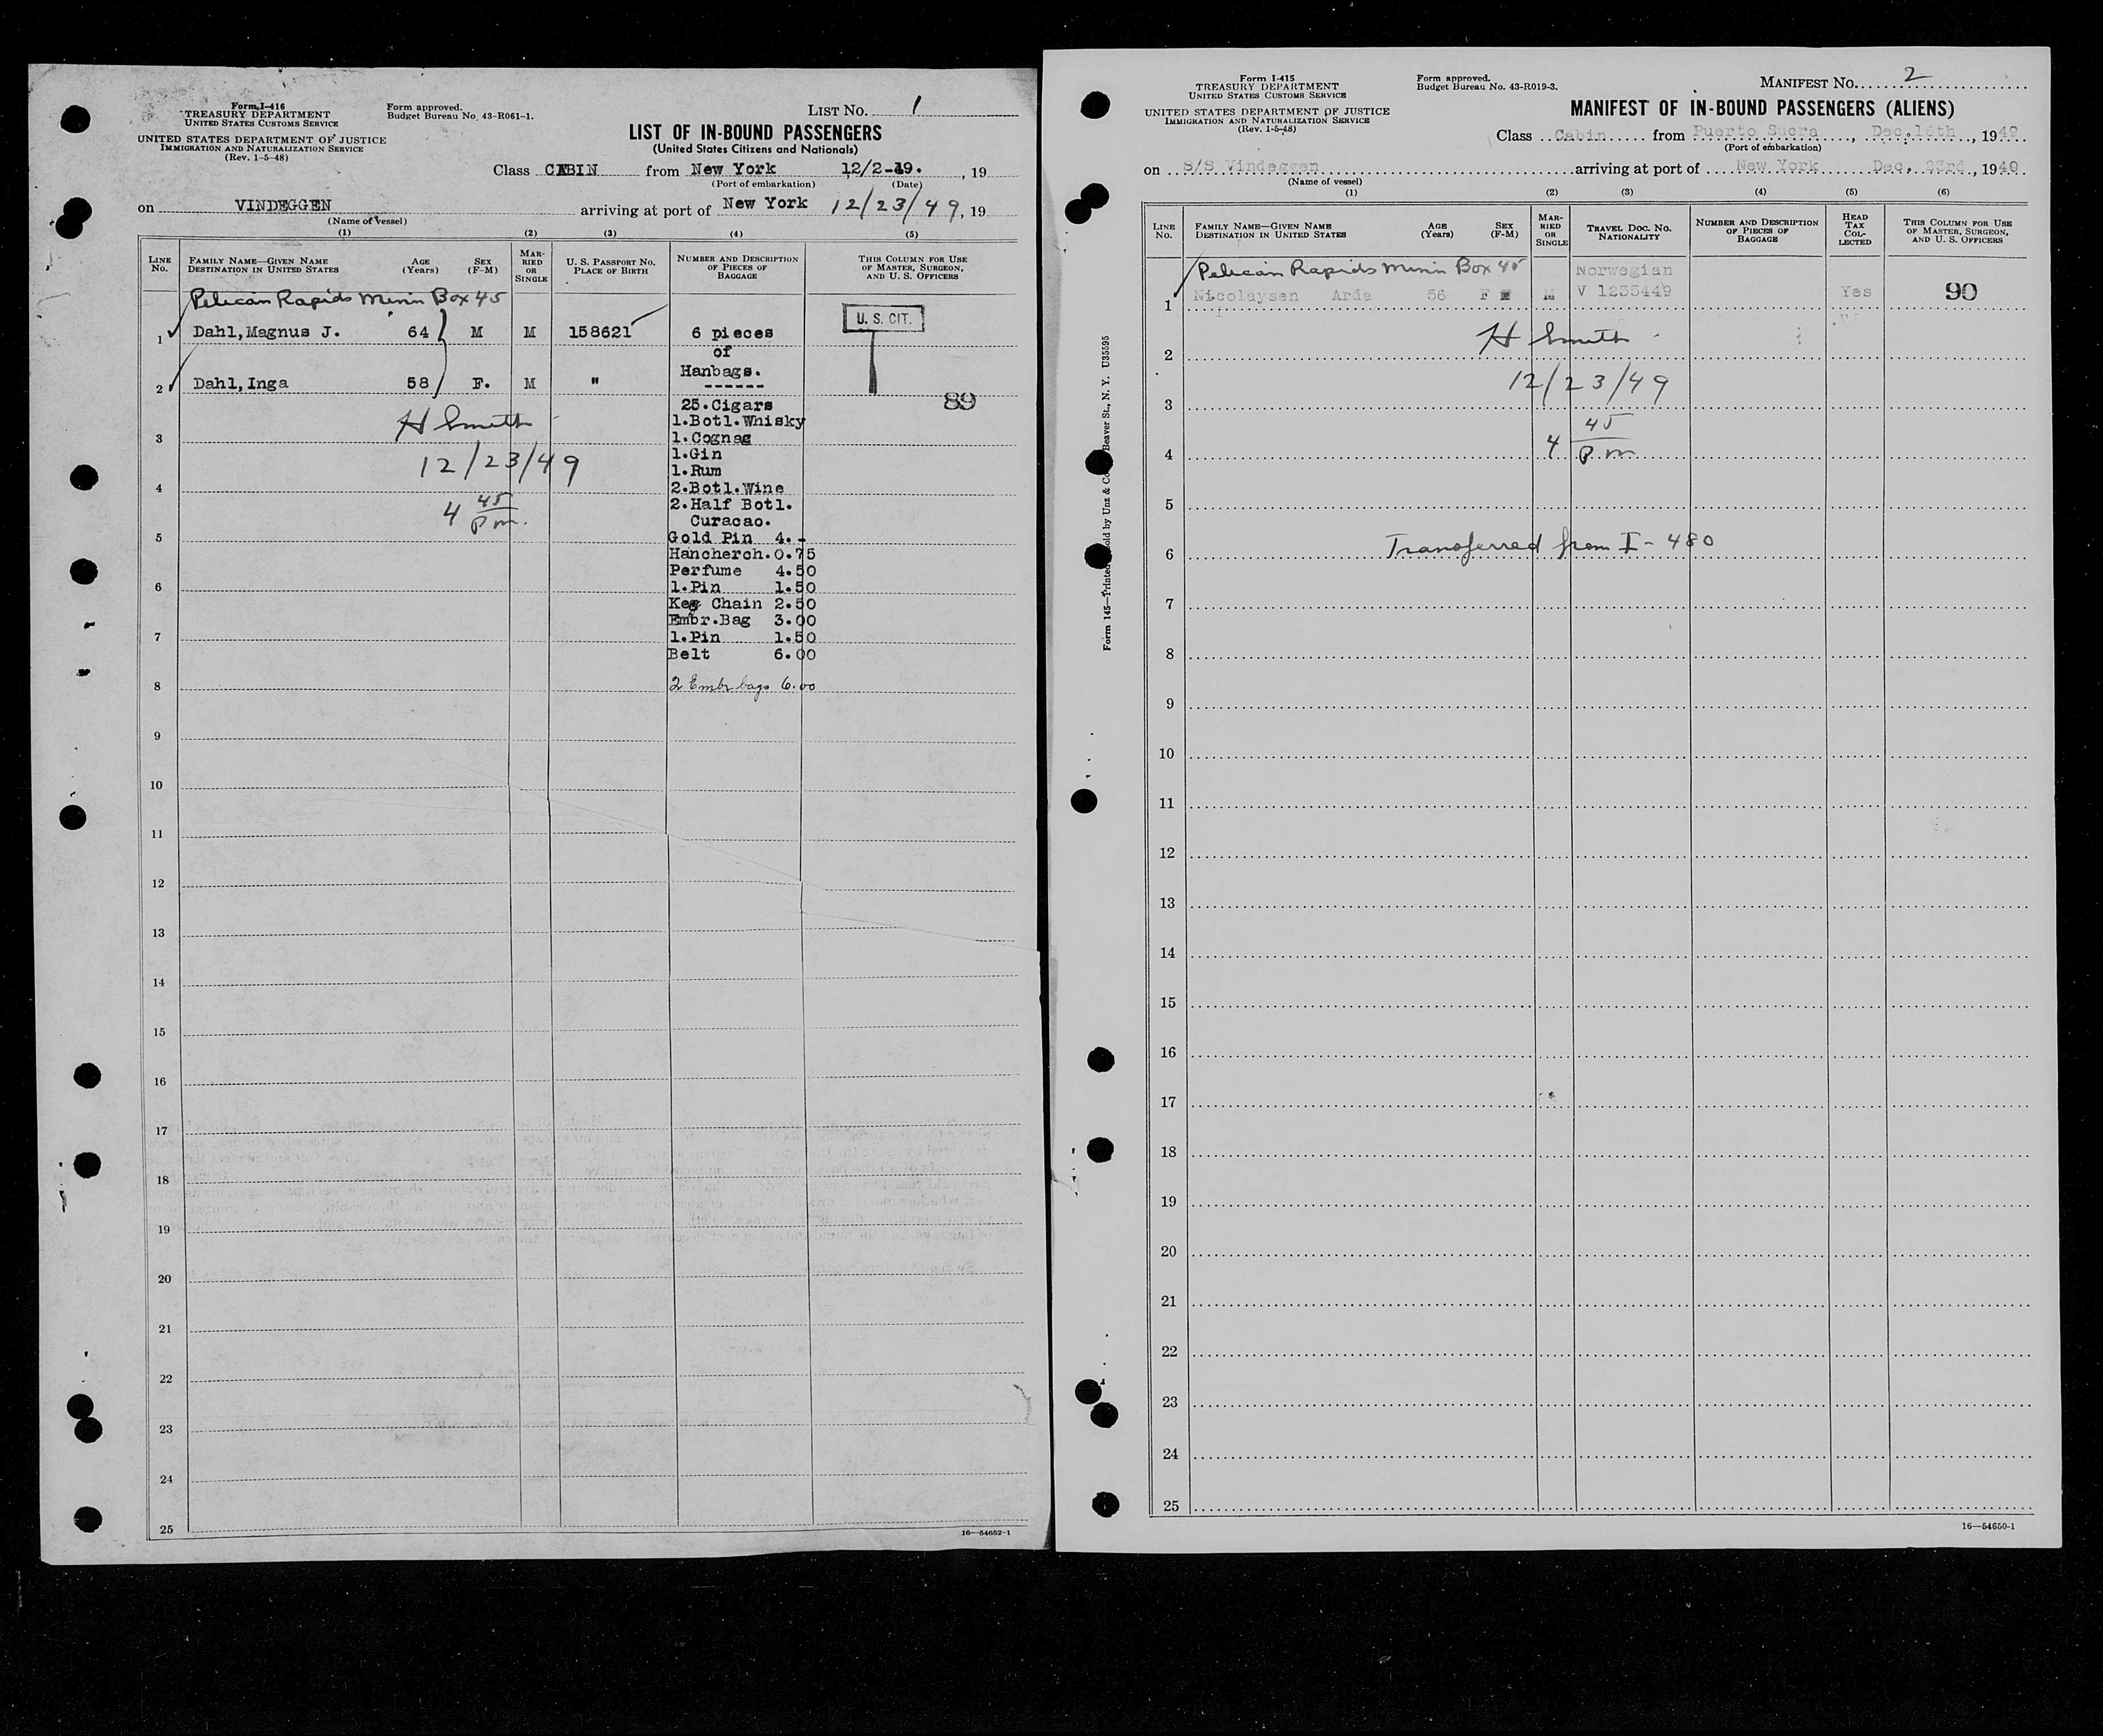 Form I-416
TREASURY DEPARTMENT
UNITED STATES CUSTOMS SERVICE
UNITED STATES DEPARTMENT OF JUSTICE
IMMIGRATION AND NATURALIZATION SERVICE
(Rev. 1-5-48)
Form approved.
Budget Bureau No. 43-R061-1.
LIST No. 1
LIST OF IN-BOUND PASSENGERS
(United States Citizens and Nationals)
Class CABIN from New York 12/2-49. , 19
(Port of embarkation) (Date)
on VINDEGGEN arriving at port of New York 12/23/49, 19
(Name of vessel)
(1) (2) (3) (4) (5)
LINE No. FAMILY NAME—GIVEN NAME DESTINATION IN UNITED STATES AGE (Years) SEX (F-M) MARRIED OR SINGLE U. S. PASSPORT No. PLACE OF BIRTH NUMBER AND DESCRIPTION OF PIECES OF BAGGAGE THIS COLUMN FOR USE OF MASTER, SURGEON, AND U. S. OFFICERS
Pelican Rapids Minn Box 45
1 Dahl,Magnus J. 64 M M 158621 6 pieces U. S. CIT.
of
Hanbags.
------
2 Dahl,Inga 58 F. M "
89
25.Cigars
1.Botl.Whisky
H Smith
3
1.Cognac
1.Gin
12/23/49
1.Rum
4
2.Botl.Wine
4 45 pm.
2.Half Botl.
Curacao.
5
Gold Pin 4.-
Hancherch.0.75
Perfume 4.50
6
1.Pin 1.50
Key Chain 2.50
Embr.Bag 3.00
7
1.Pin 1.50
Belt 6.00
8
2 Embr bags 6.00
9
10
11
12
13
14
15
16
17
18
19
20
21
22
23
24
25
16—54652-1
Form I-415
TREASURY DEPARTMENT
UNITED STATES CUSTOMS SERVICE
UNITED STATES DEPARTMENT OF JUSTICE
IMMIGRATION AND NATURALIZATION SERVICE
(Rev. 1-5-48)
Form approved.
Budget Bureau No. 43-R019-3.
MANIFEST No. 2
MANIFEST OF IN-BOUND PASSENGERS (ALIENS)
Class Cabin from Puerto Sucra, Dec.16th, 1949
(Port of embarkation)
on S/S Vindeggen arriving at port of New York Dec. 23rd, 1949
(Name of vessel)
(1) (2) (3) (4) (5) (6)
LINE No. FAMILY NAME—GIVEN NAME DESTINATION IN UNITED STATES AGE (Years) SEX (F-M) MARRIED OR SINGLE TRAVEL DOC. No. NATIONALITY NUMBER AND DESCRIPTION OF PIECES OF BAGGAGE HEAD TAX COLLECTED THIS COLUMN FOR USE OF MASTER, SURGEON, AND U. S. OFFICERS
Pelican Rapids Minn Box 45 Norwegian
1 Nicolaysen Arda 56 F M V 1235449 Yes 90
2 H Smith
3 12/23/49
4 4 45 P.m
5
6 Transferred from I-480
7
8
9
10
11
12
13
14
15
16
17
18
19
20
21
22
23
24
25
16—54650-1